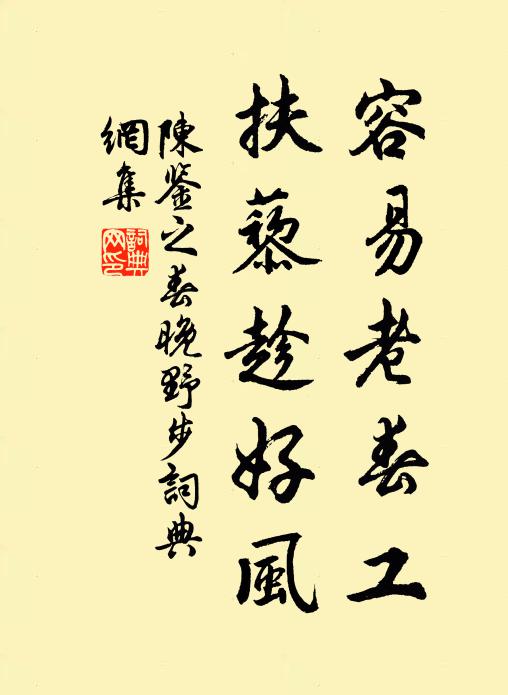 容易老春工
扶藜趁好風
陳鉴之春晚野步詞典
網集
詞典
网印